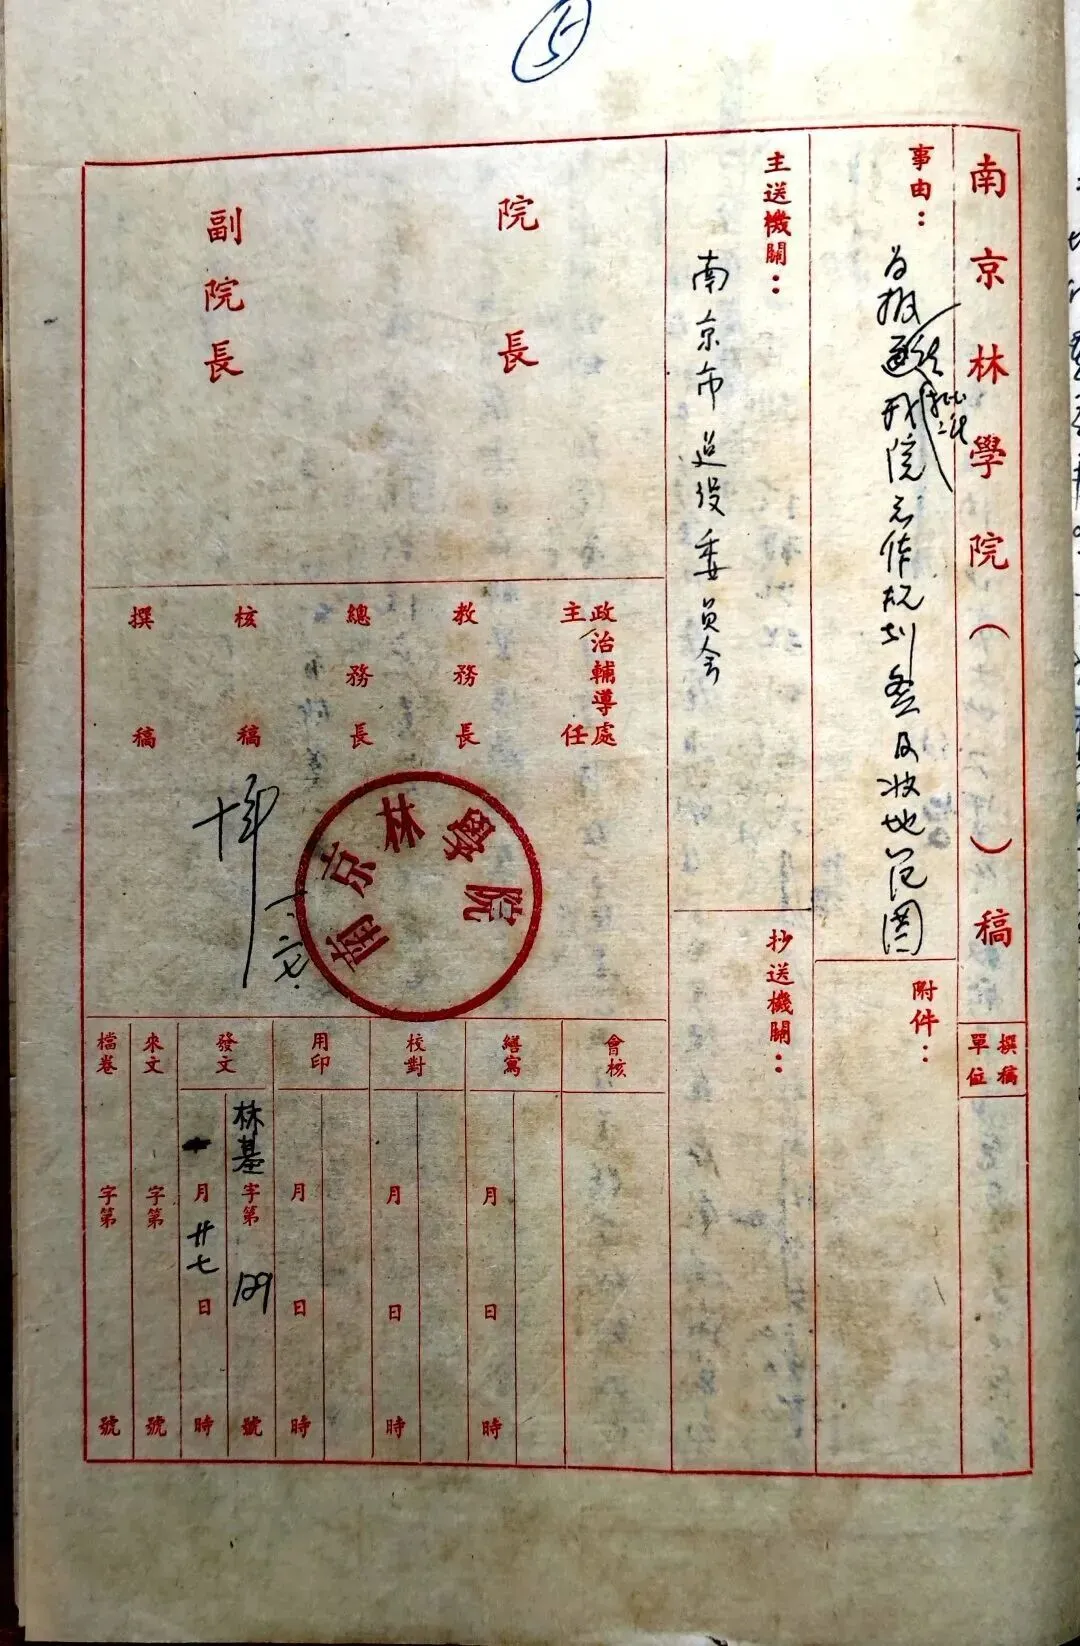 5
南京林學院（　）稿
撰稿單位
事由：
为报
我院工作规划叁及收地范圍
附件：
主送機關：
南京市建設委員会
抄送機關：
院長
副院長
政治輔導處主任
教務長
總務長
核稿
撰稿
南京林學院
會核
繕寫
月日時
校對
月日時
用印
月日時
發文
林基字第129號
月廿七日時
來文
字第號
檔卷
字第號